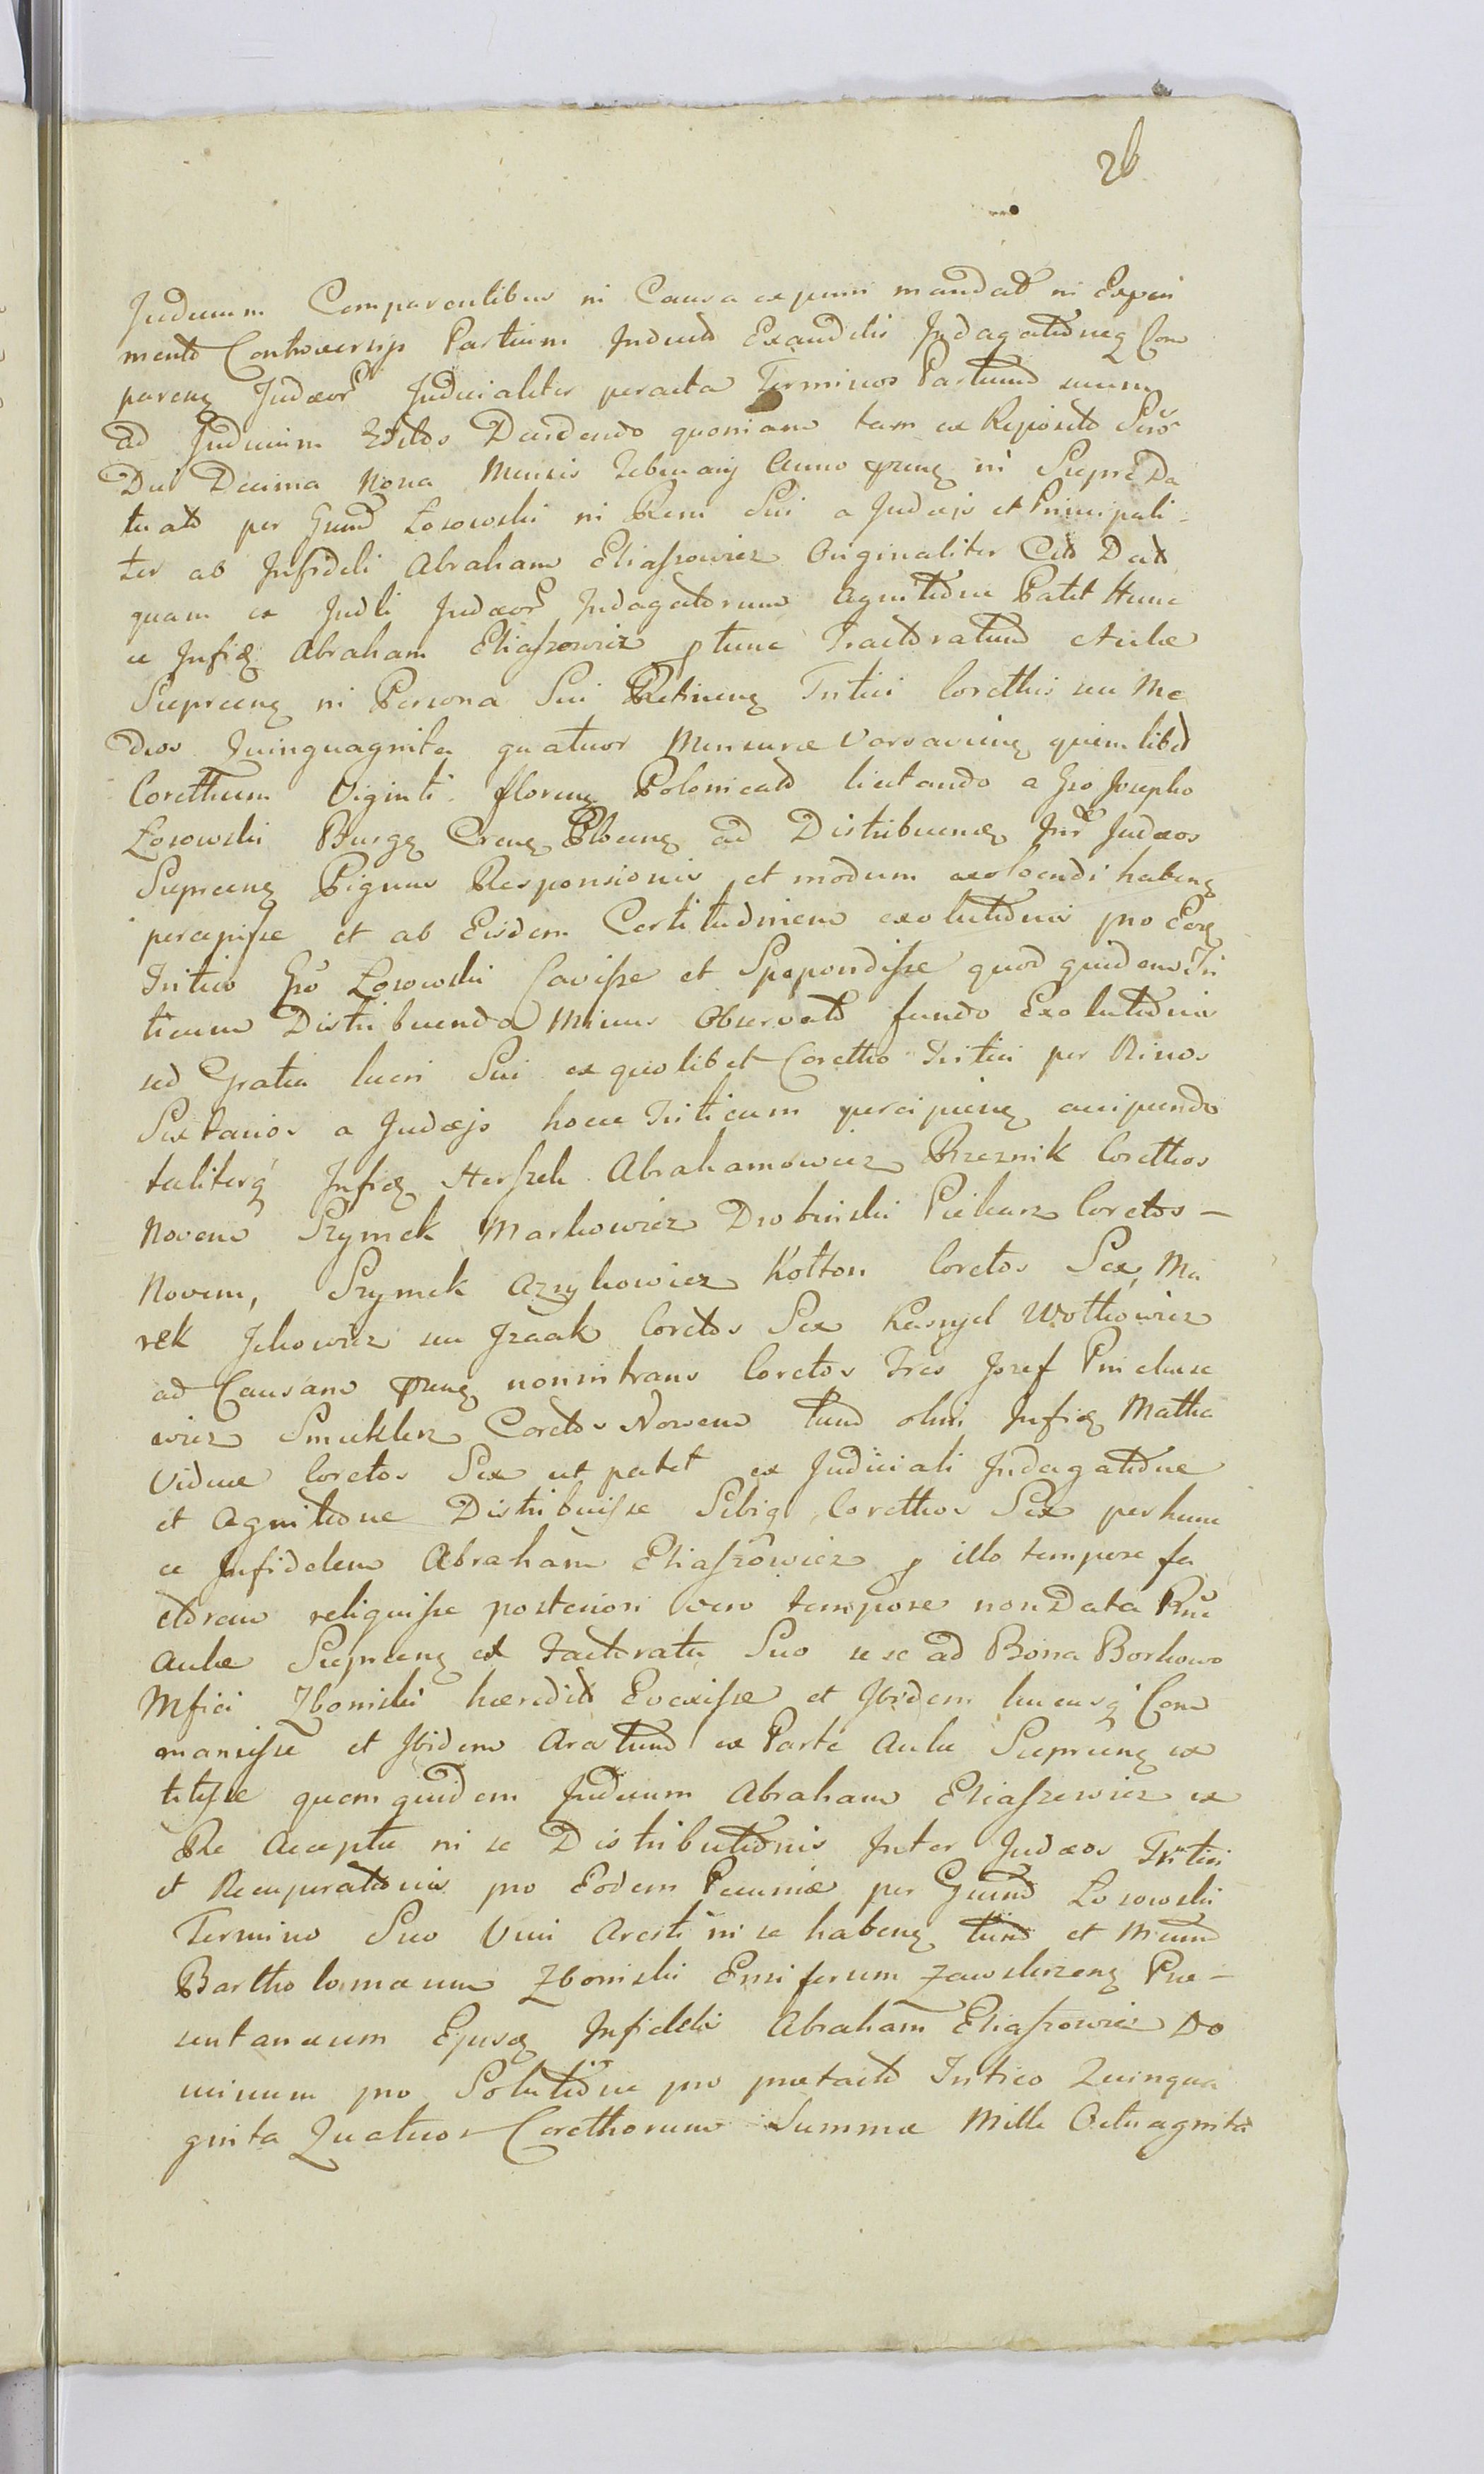 26
Judicium Comparentibus in Causa ex puni mandat in Experi
mento Controversijs Partium Inducto Exauditis Indagationeq Com
pareng Judæor Judicialiter peracta Terminos Partium suum
ad Judicium Decidendo quoniam tam ex Reposito Scro
Die Decima Nona Mensis Februarij Anno præng in Scepre Da
tuato per Gnund Łosowski in Rem Sui a Judæjs et Principali-
ter ab Infideli Abraham Eliaszowicz Originaliter Cito Dato
quam ex Judli Judæor Indagatorum Agnitione Patet Hunc
ce Infiq Abraham Eliaszowicz p tunc Factoratum Aulæ
Scepreeng in Persona Sui Retineng Tritici Corethis seu Me
dios Quinquaginta quatuor Mensuræ Varsavieng quemlibet
Corethum Viginti floreng Polonicato licitando a Gro Josepho
Łosowski Burgg Creng Plbeng ad Distribueneq Intr Judæos
Scepreeng Pignus Responsionis et modum exolvendi habeng
percepisse et ab Eisdem Certitudinem exolutionis pro Eoq
Tritico Gro Łosowski Cavisse et Spopondisse quod quidem Tri
ticum Distribuendo Minus Observato fundo Exolutionis
sed Gratia lucri Sui ex quolibet Corettho Tritici per Binos
Sextarios a Judæjs hocce Triticum percipieng accipiendo
taliterq Infiq Herszek Abrahamowicz Rzeznik Corethos
Novem Szymek Markowicz Drobinski Piekarz Coretos -
Novem, Szymek Azykowicz Kotton Coretos Sex, Ma
rek Jckowicz seu Jzaak Coretos Sex Kasryel Wolkowicz
ad Causam præng nonintrans Coretos Tres Josef Pinchuse
wicz Smuklerz Coretos Novem tund olim Infiq Matka
Viduæ Coretos Sex ut patet ex Judiciali Indagatione
et Agnitione Distribuisse Sibiq Coretthos Sex per hunc
ce Infidelem Abraham Eliaszowicz p illo tempore fa
ctorem reliquisse posteriori vero tempore non Data Rne
Aulæ Scepreeng ex Factoratu Suo sese ad Bona Borkowo
Mfici Zboinski hæredito Evexisse et Ibidem hucusq Com
mansisse et Ibidem Aratund ex Parte Aulæ Scepreeng ex
titisse quem quidem Judæum Abraham Eliaszewicz ex
Re Accepta in se Distributionis Inter Judæos Tritici
et Recuperationis pro Eodem Pecuniæ per Gnund Łosowski
Termino Suo Vini Aresti in se habeng tund et Mcum
Bartholomæum Zboinski Ensiferum Zawskrzeng Præ-
sentaneum Ejusq Infidelis Abraham Eliaszowicz Do
minum pro Solutione pro prætacto Tritico Quinqua
ginta Quatuor Corethorum Summæ Mille Octuaginta